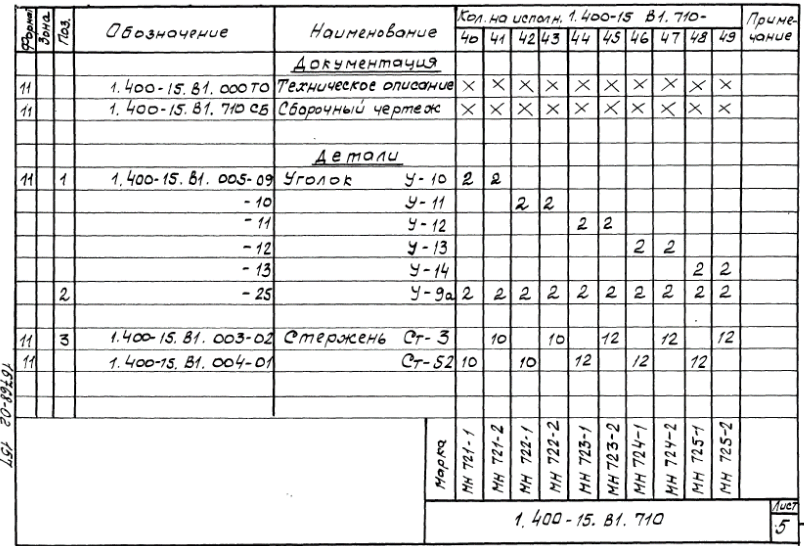 Формат Зона Поз. Обозначение Наименование Кол. на исполн. 1.400-15 В1.710- Примечание
40 41 42 43 44 45 46 47 48 49
Документация
11 1.400-15.В1.000ТО Техническое описание × × × × × × × × × ×
11 1.400-15.В1.710СБ Сборочный чертеж × × × × × × × × × ×
Детали
11 1 1.400-15.В1.005-09 Уголок У-10 2 2
-10 У-11 2 2
-11 У-12 2 2
-12 У-13 2 2
-13 У-14 2 2
2 -25 У-9а 2 2 2 2 2 2 2 2 2 2
11 3 1.400-15.В1.003-02 Стержень Ст-3 10 10 12 12 12
11 1.400-15.В1.004-01 Ст-52 10 10 12 12 12
Марка МН 721-1 МН 721-2 МН 722-1 МН 722-2 МН 723-1 МН 723-2 МН 724-1 МН 724-2 МН 725-1 МН 725-2
1.400-15.В1.710
Лист
5
157